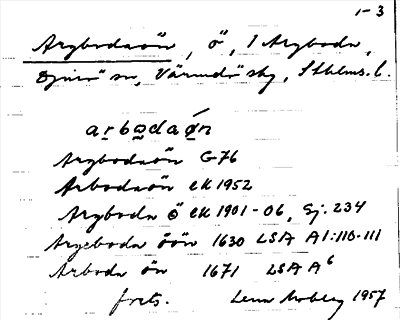 1-3
Arybodaön, ö, i Aryboda,
Djurö sn, Värmdö skg, Sthlms. l.
arbodaǿn
Arybodaön G76
Arbodaön ek 1952
Aryboda ö ek 1901-06, Sj. 234
öön 1630 LSA A1:110-111
Arboda ön 1671 LSA A6
forts. 1957